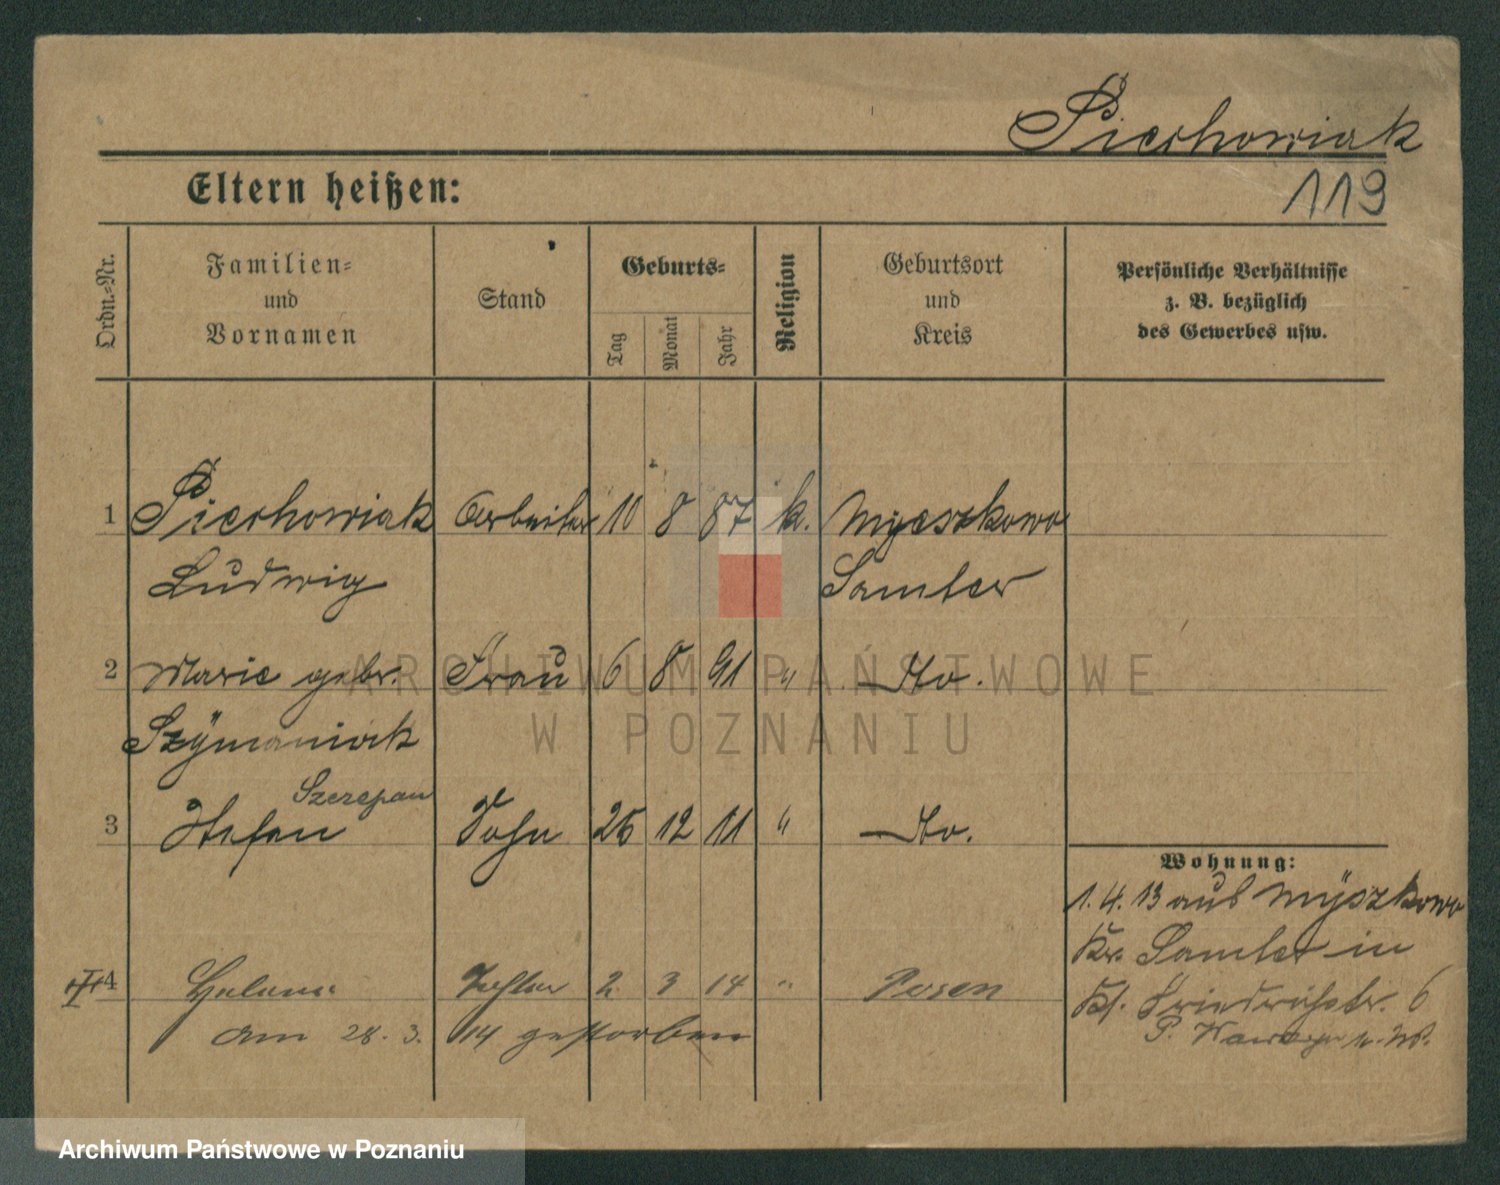 Piechowiak
Eltern heißen:
119
Ordn.-Nr.
Familien-
und
Vornamen
Stand
Geburts-
Tag
Monat
Jahr
Religion
Geburtsort
und
Kreis
Persönliche Verhältnisse
z. B. bezüglich
des Gewerbes usw.
1 Piechowiak Arbeiter 10 8 87 k. Myeszkowo
Ludwig Samter
2 Marie gebr. Frau 6 8 91 " Do.
Szÿmaniak
Szczepan
3 Stefan Sohn 26 12 11 " Do.
Wohnung:
1. 4. 13 aus Mÿszkowo
Kr. Samter in
Kl. Friedrichstr. 6
4 Helena Tochter 2 3 14 " Posen
am 28. 3. 14 gestorben
P.
ARCHIWUM PAŃSTWOWE
W POZNANIU
Archiwum Państwowe w Poznaniu